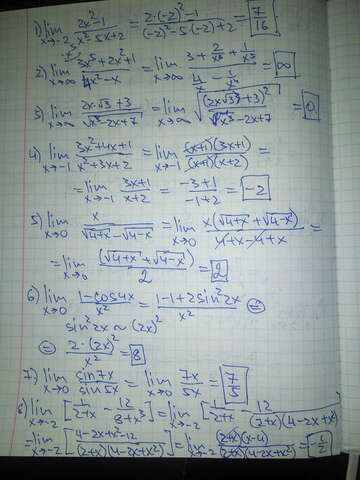 1) lim x→-2 (2x²-1)/(x²-5x+2) = (2·(-2)²-1)/((-2)²-5(-2)+2) = 7/16
2) lim x→∞ (3x⁵+2x²+1)/(4x⁴-x) = lim x→∞ (3+2/x³+1/x⁵)/(4/x-1/x⁴) = ∞
3) lim x→∞ (2x·√3+3)/√(x³-2x+7) = lim x→∞ √((2x√3+3)²/(x³-2x+7)) = 0
4) lim x→-1 (3x²+4x+1)/(x²+3x+2) = lim x→-1 ((x+1)(3x+1))/((x+1)(x+2)) =
= lim x→-1 (3x+1)/(x+2) = (-3+1)/(-1+2) = -2
5) lim x→0 x/(√(4+x)-√(4-x)) = lim x→0 x(√(4+x)+√(4-x))/(4+x-4+x) =
= lim x→0 (√(4+x)+√(4-x))/2 = 2
6) lim x→0 (1-cos4x)/x² = (1-1+2sin²2x)/x² =
sin²2x ~ (2x)²
= 2·(2x)²/x² = 8
7) lim x→0 sin7x/sin5x = lim x→0 7x/5x = 7/5
8) lim x→-2 [1/(2+x) - 12/(8+x³)] = lim x→-2 [1/(2+x) - 12/((2+x)(4-2x+x²))]
= lim x→-2 [(4-2x+x²-12)/((2+x)(4-2x+x²))] = lim x→-2 ((2+x)(x-4))/((2+x)(4-2x+x²)) = -1/2